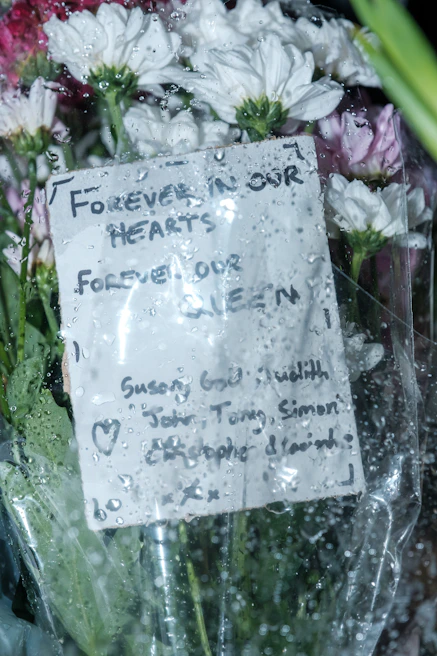 FOREVER IN OUR
HEARTS
FOREVER OUR
QUEEN
Susan, Judith
John, Tony, Simon
Christopher &
x x x